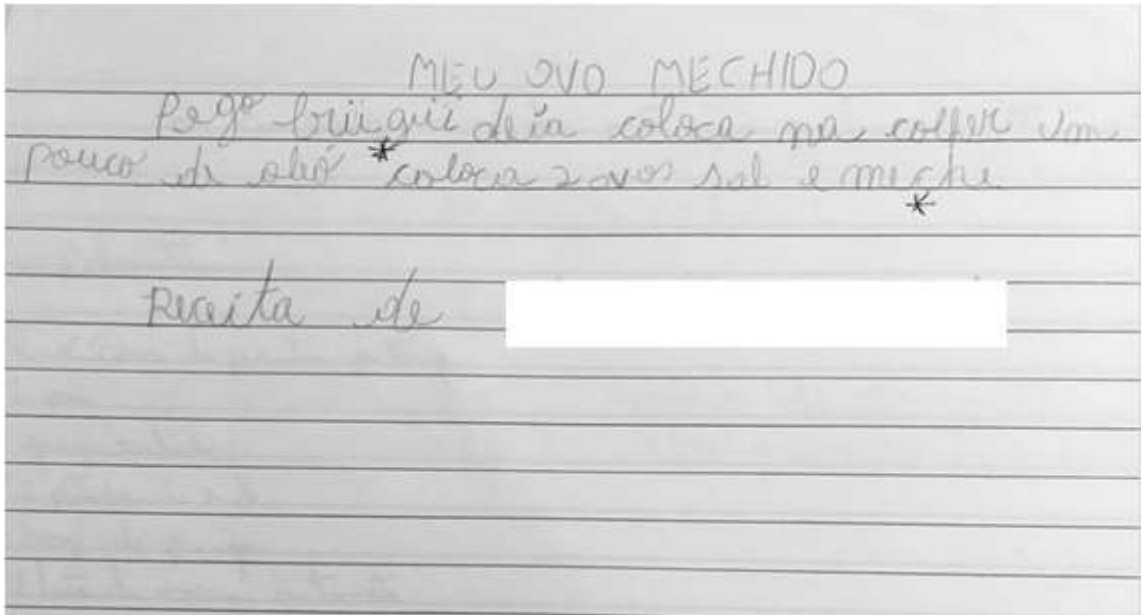 MEU OVO MECHIDO
Pego deia coloca na colher um
pouco di olió * coloca 2 ovos sal e meche *
Receita de